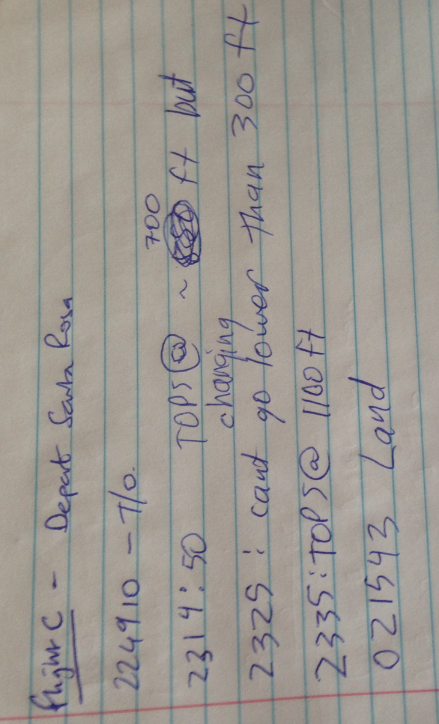 Flight C - Depart Santa Rosa
224910 - T/O.
2314:50 TOPS @ ~ 700 ft but
changing
2325: cant go lower than 300 ft
2335: TOPS @ 1100 ft
021543 Land